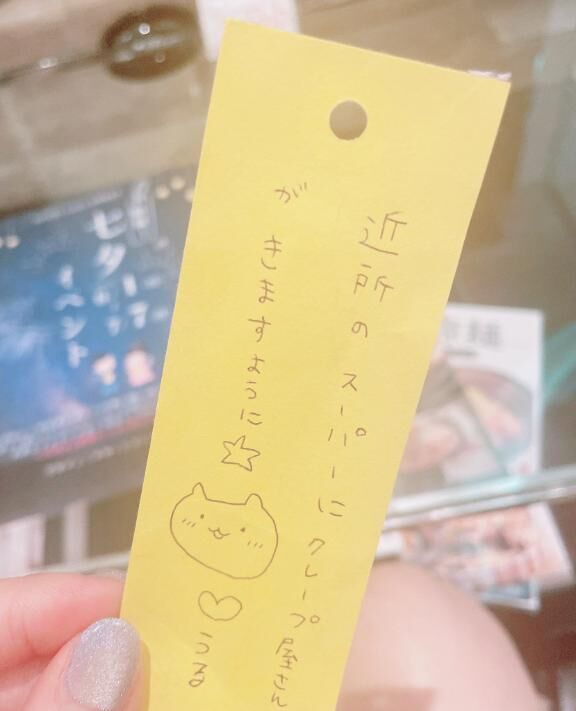 近所のスーパーにクレープ屋さん
がきますように☆
♡うる
七夕
イベント